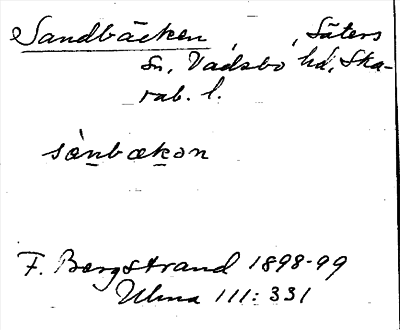 Sandbäcken, Säters
Sn, Vadsbo hd, Ska-
rab. l.
sànbækən
F. Bergstrand 1898-99
Ulma 111:331